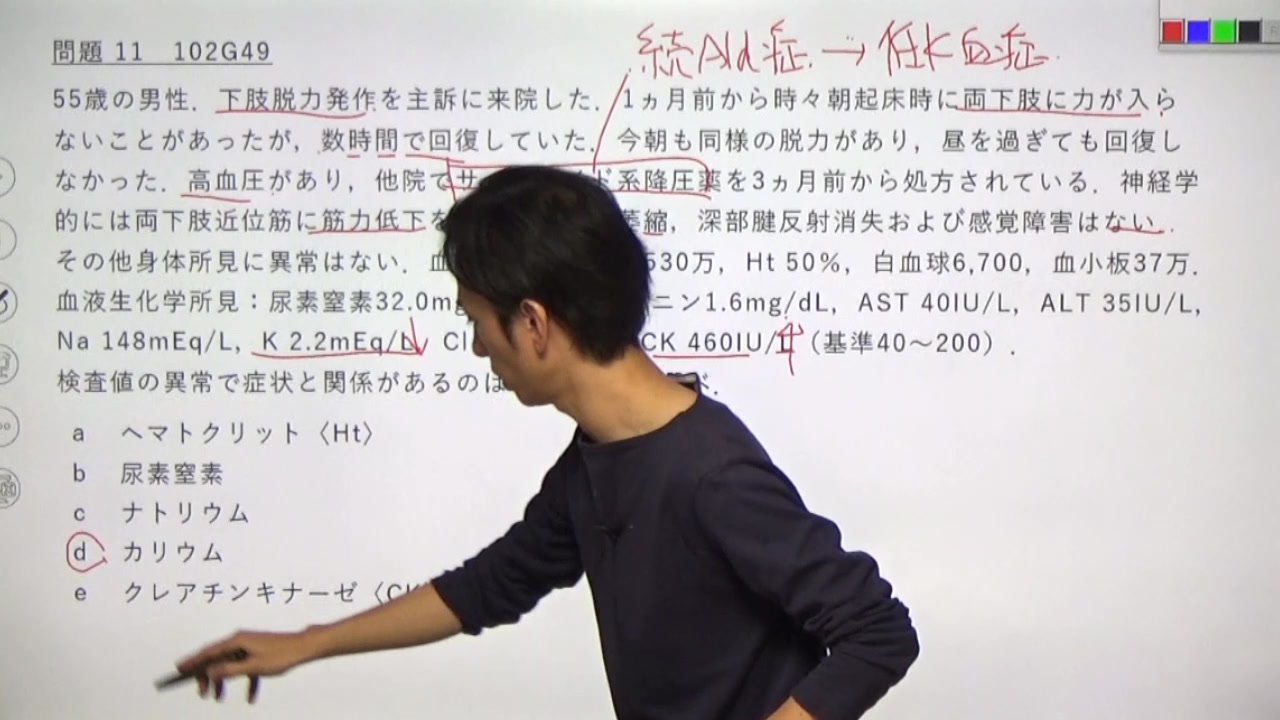 問題 11 102G49
続Ald症 → 低K血症
55歳の男性．下肢脱力発作を主訴に来院した．1ヵ月前から時々朝起床時に両下肢に力が入ら
ないことがあったが，数時間で回復していた．今朝も同様の脱力があり，昼を過ぎても回復し
なかった．高血圧があり，他院でサ ド系降圧薬を3ヵ月前から処方されている．神経学
的には両下肢近位筋に筋力低下を 萎縮，深部腱反射消失および感覚障害はない．
その他身体所見に異常はない．血 530万，Ht 50％，白血球6,700，血小板37万．
血液生化学所見：尿素窒素32.0mg ニン1.6mg/dL，AST 40IU/L，ALT 35IU/L，
Na 148mEq/L，K 2.2mEq/L↓ Cl CK 460IU/L↑（基準40～200）．
検査値の異常で症状と関係があるのは べ．
a ヘマトクリット〈Ht〉
b 尿素窒素
c ナトリウム
d カリウム
e クレアチンキナーゼ〈CK